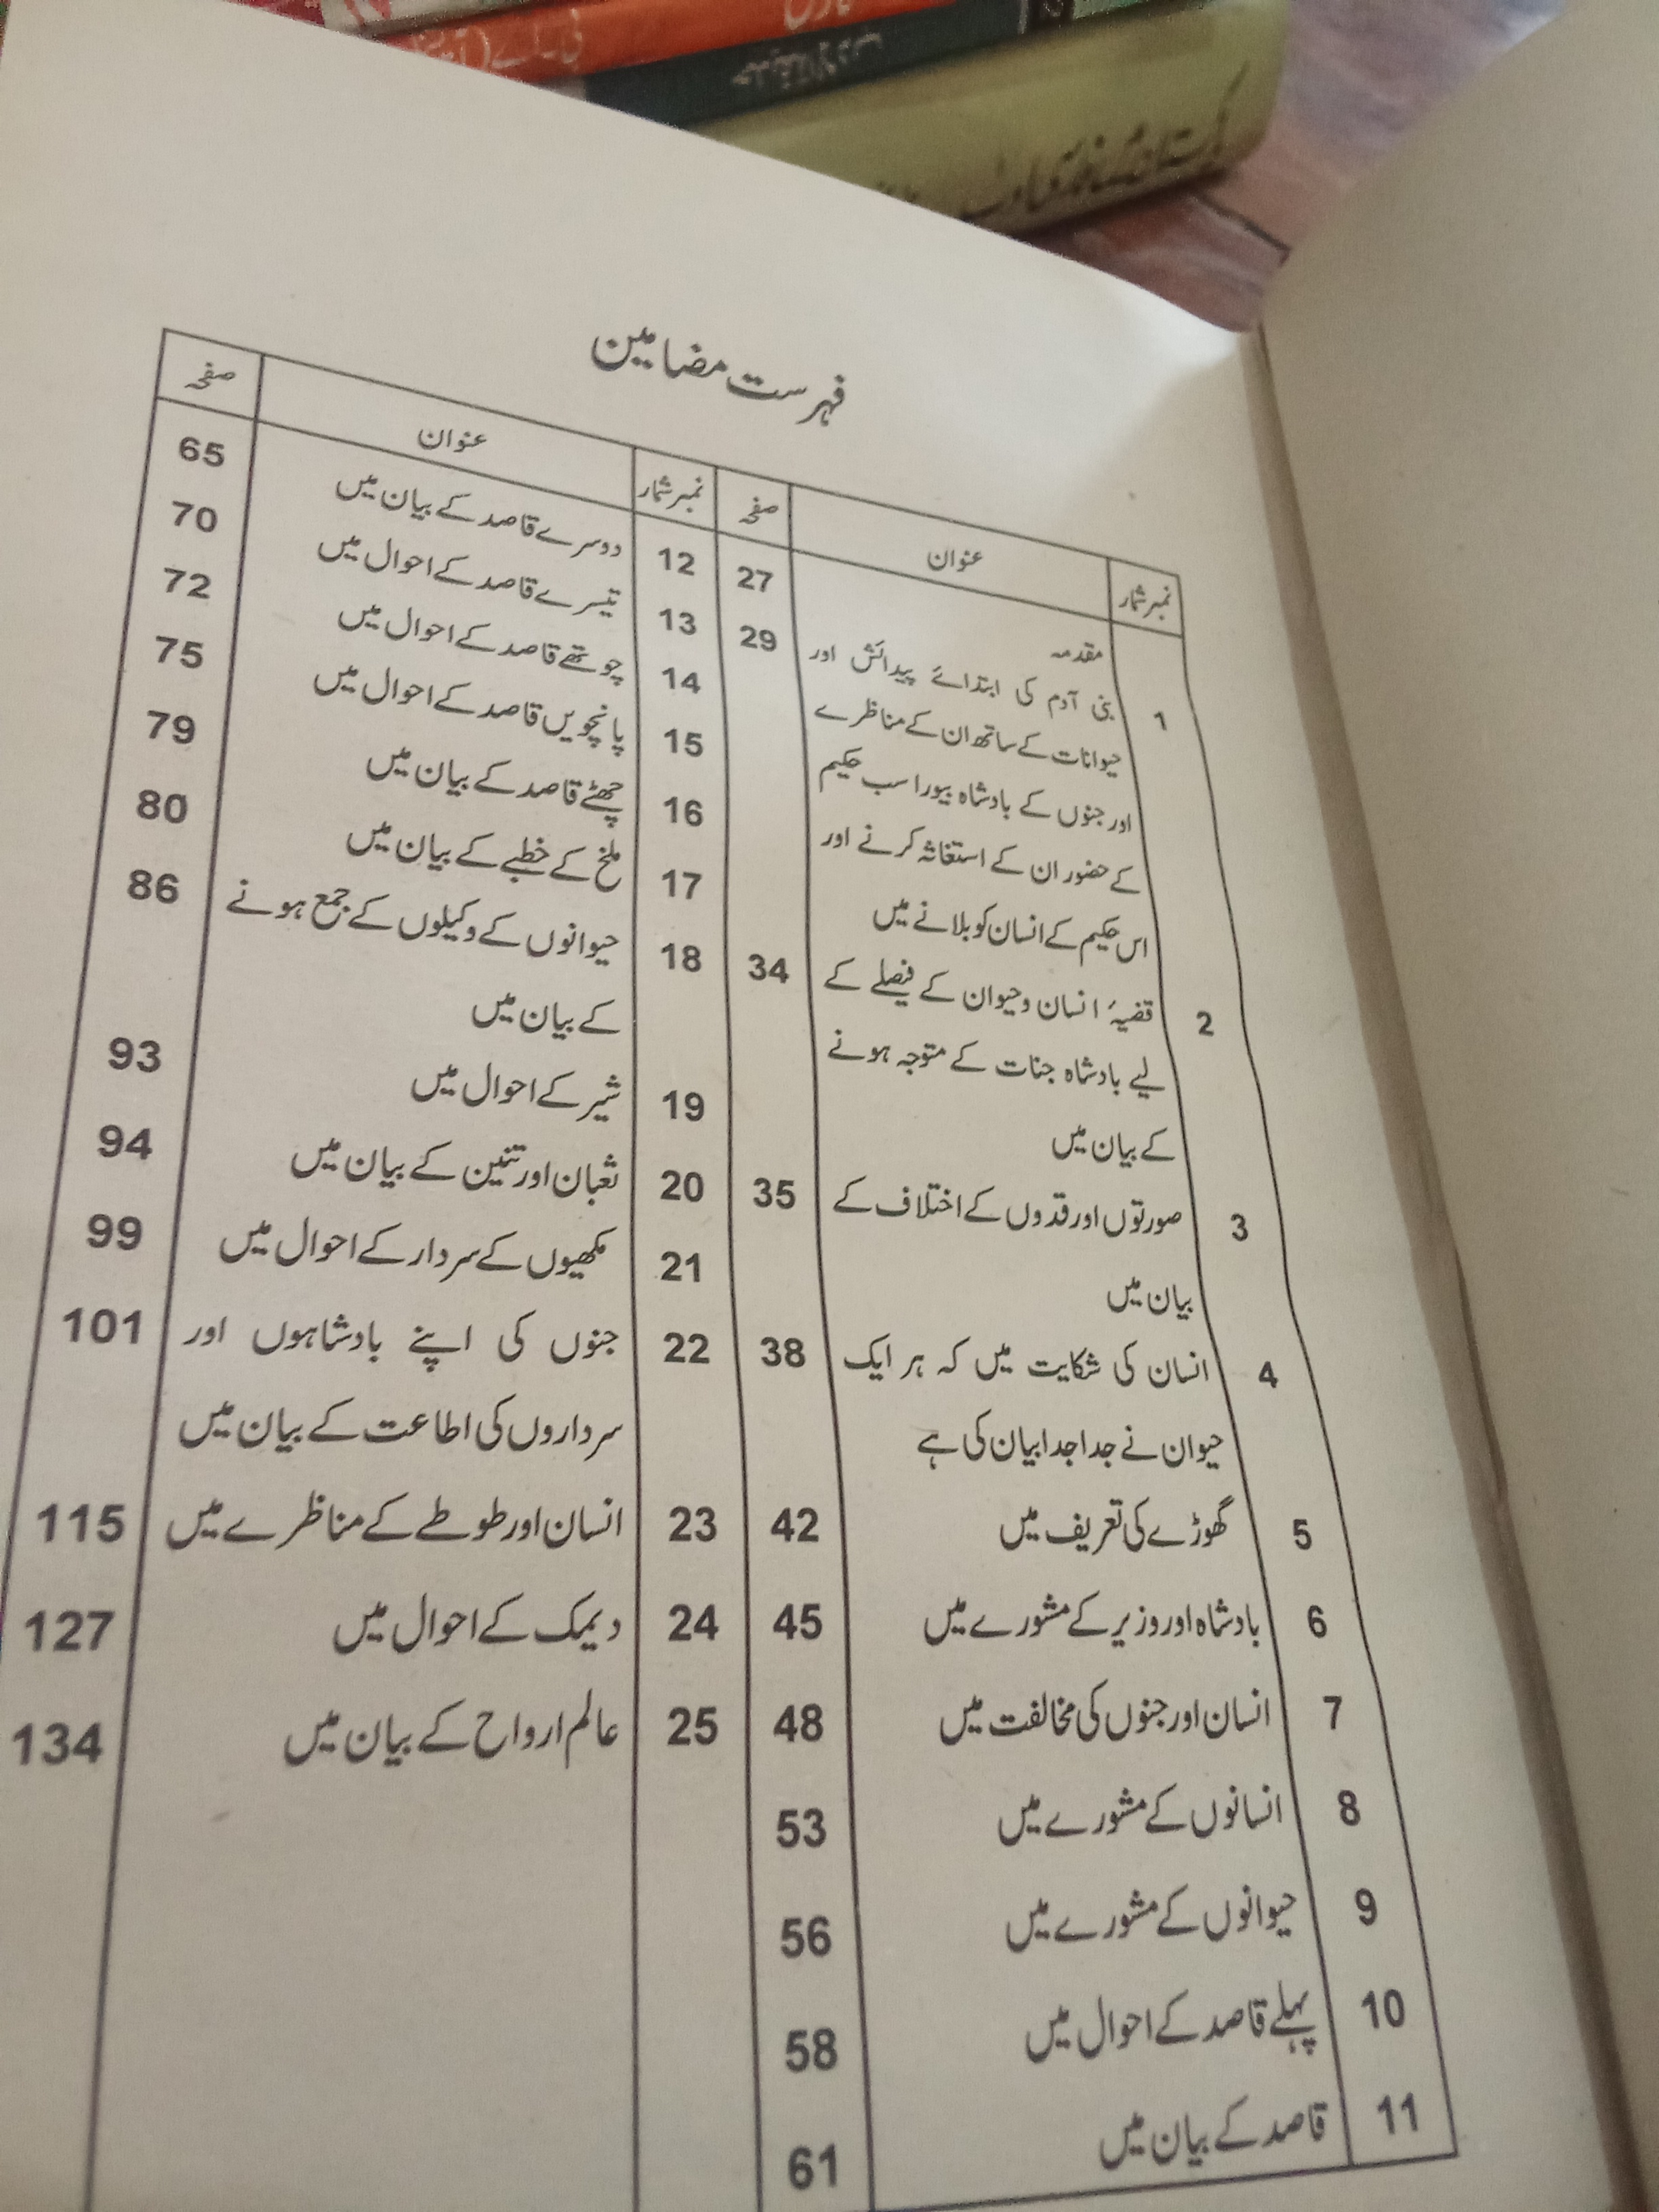 فہرست مضامین
نمبر شمار عنوان صفحہ
مقدمہ 27
1 بنی آدم کی ابتدائے پیدائش اور 29
حیوانات کے ساتھ ان کے مناظرے
اور جنوں کے بادشاہ بیوراسب حکیم
کے حضور ان کے استغاثہ کرنے اور
اس حکیم کے انسان کو بلانے میں
2 قضیۂ انسان و حیوان کے فیصلے کے 34
لیے بادشاہ جنات کے متوجہ ہونے
کے بیان میں
3 صورتوں اور قدوں کے اختلاف کے 35
بیان میں
4 انسان کی شکایت میں کہ ہر ایک 38
حیوان نے جدا جدا بیان کی ہے
5 گھوڑے کی تعریف میں 42
6 بادشاہ اور وزیر کے مشورے میں 45
7 انسان اور جنوں کی مخالفت میں 48
8 انسانوں کے مشورے میں 53
9 حیوانوں کے مشورے میں 56
10 پہلے قاصد کے احوال میں 58
11 قاصد کے بیان میں 61
نمبر شمار عنوان صفحہ
12 دوسرے قاصد کے بیان میں 65
13 تیسرے قاصد کے احوال میں 70
14 چوتھے قاصد کے احوال میں 72
15 پانچویں قاصد کے احوال میں 75
16 چھٹے قاصد کے بیان میں 79
17 ملخ کے خطبے کے بیان میں 80
18 حیوانوں کے وکیلوں کے جمع ہونے 86
کے بیان میں
19 شیر کے احوال میں 93
20 ثعبان اور تنین کے بیان میں 94
21 مکھیوں کے سردار کے احوال میں 99
22 جنوں کی اپنے بادشاہوں اور 101
سرداروں کی اطاعت کے بیان میں
23 انسان اور طوطے کے مناظرے میں 115
24 دیمک کے احوال میں 127
25 عالم ارواح کے بیان میں 134